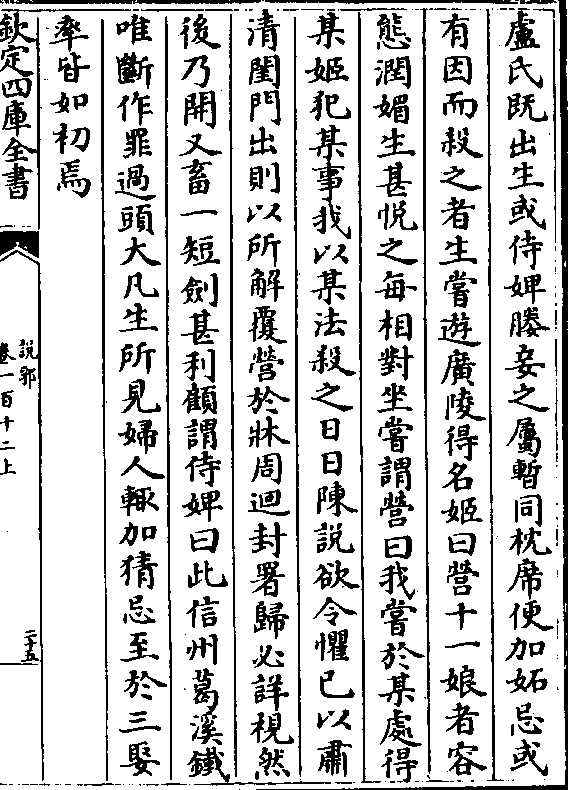 盧氏既出生或侍婢媵妾之屬暫同枕席便加妬忌或
有因而殺之者生嘗遊廣陵得名姬曰營十一娘者容
態潤媚生甚悅之每相對坐嘗謂營曰我嘗於某處得
某姬犯某事我以某法殺之日日陳說欲令懼已以肅
清閨門出則以所解覆營於牀周迴封署歸必詳視然
後乃開又畜一短劍甚利顧謂侍婢曰此信州葛溪鐵
唯斷作罪過頭大凡生所見婦人輒加猜忌至於三娶
率皆如初焉
欽定四庫全書
說郛
卷一百十二上
二十五